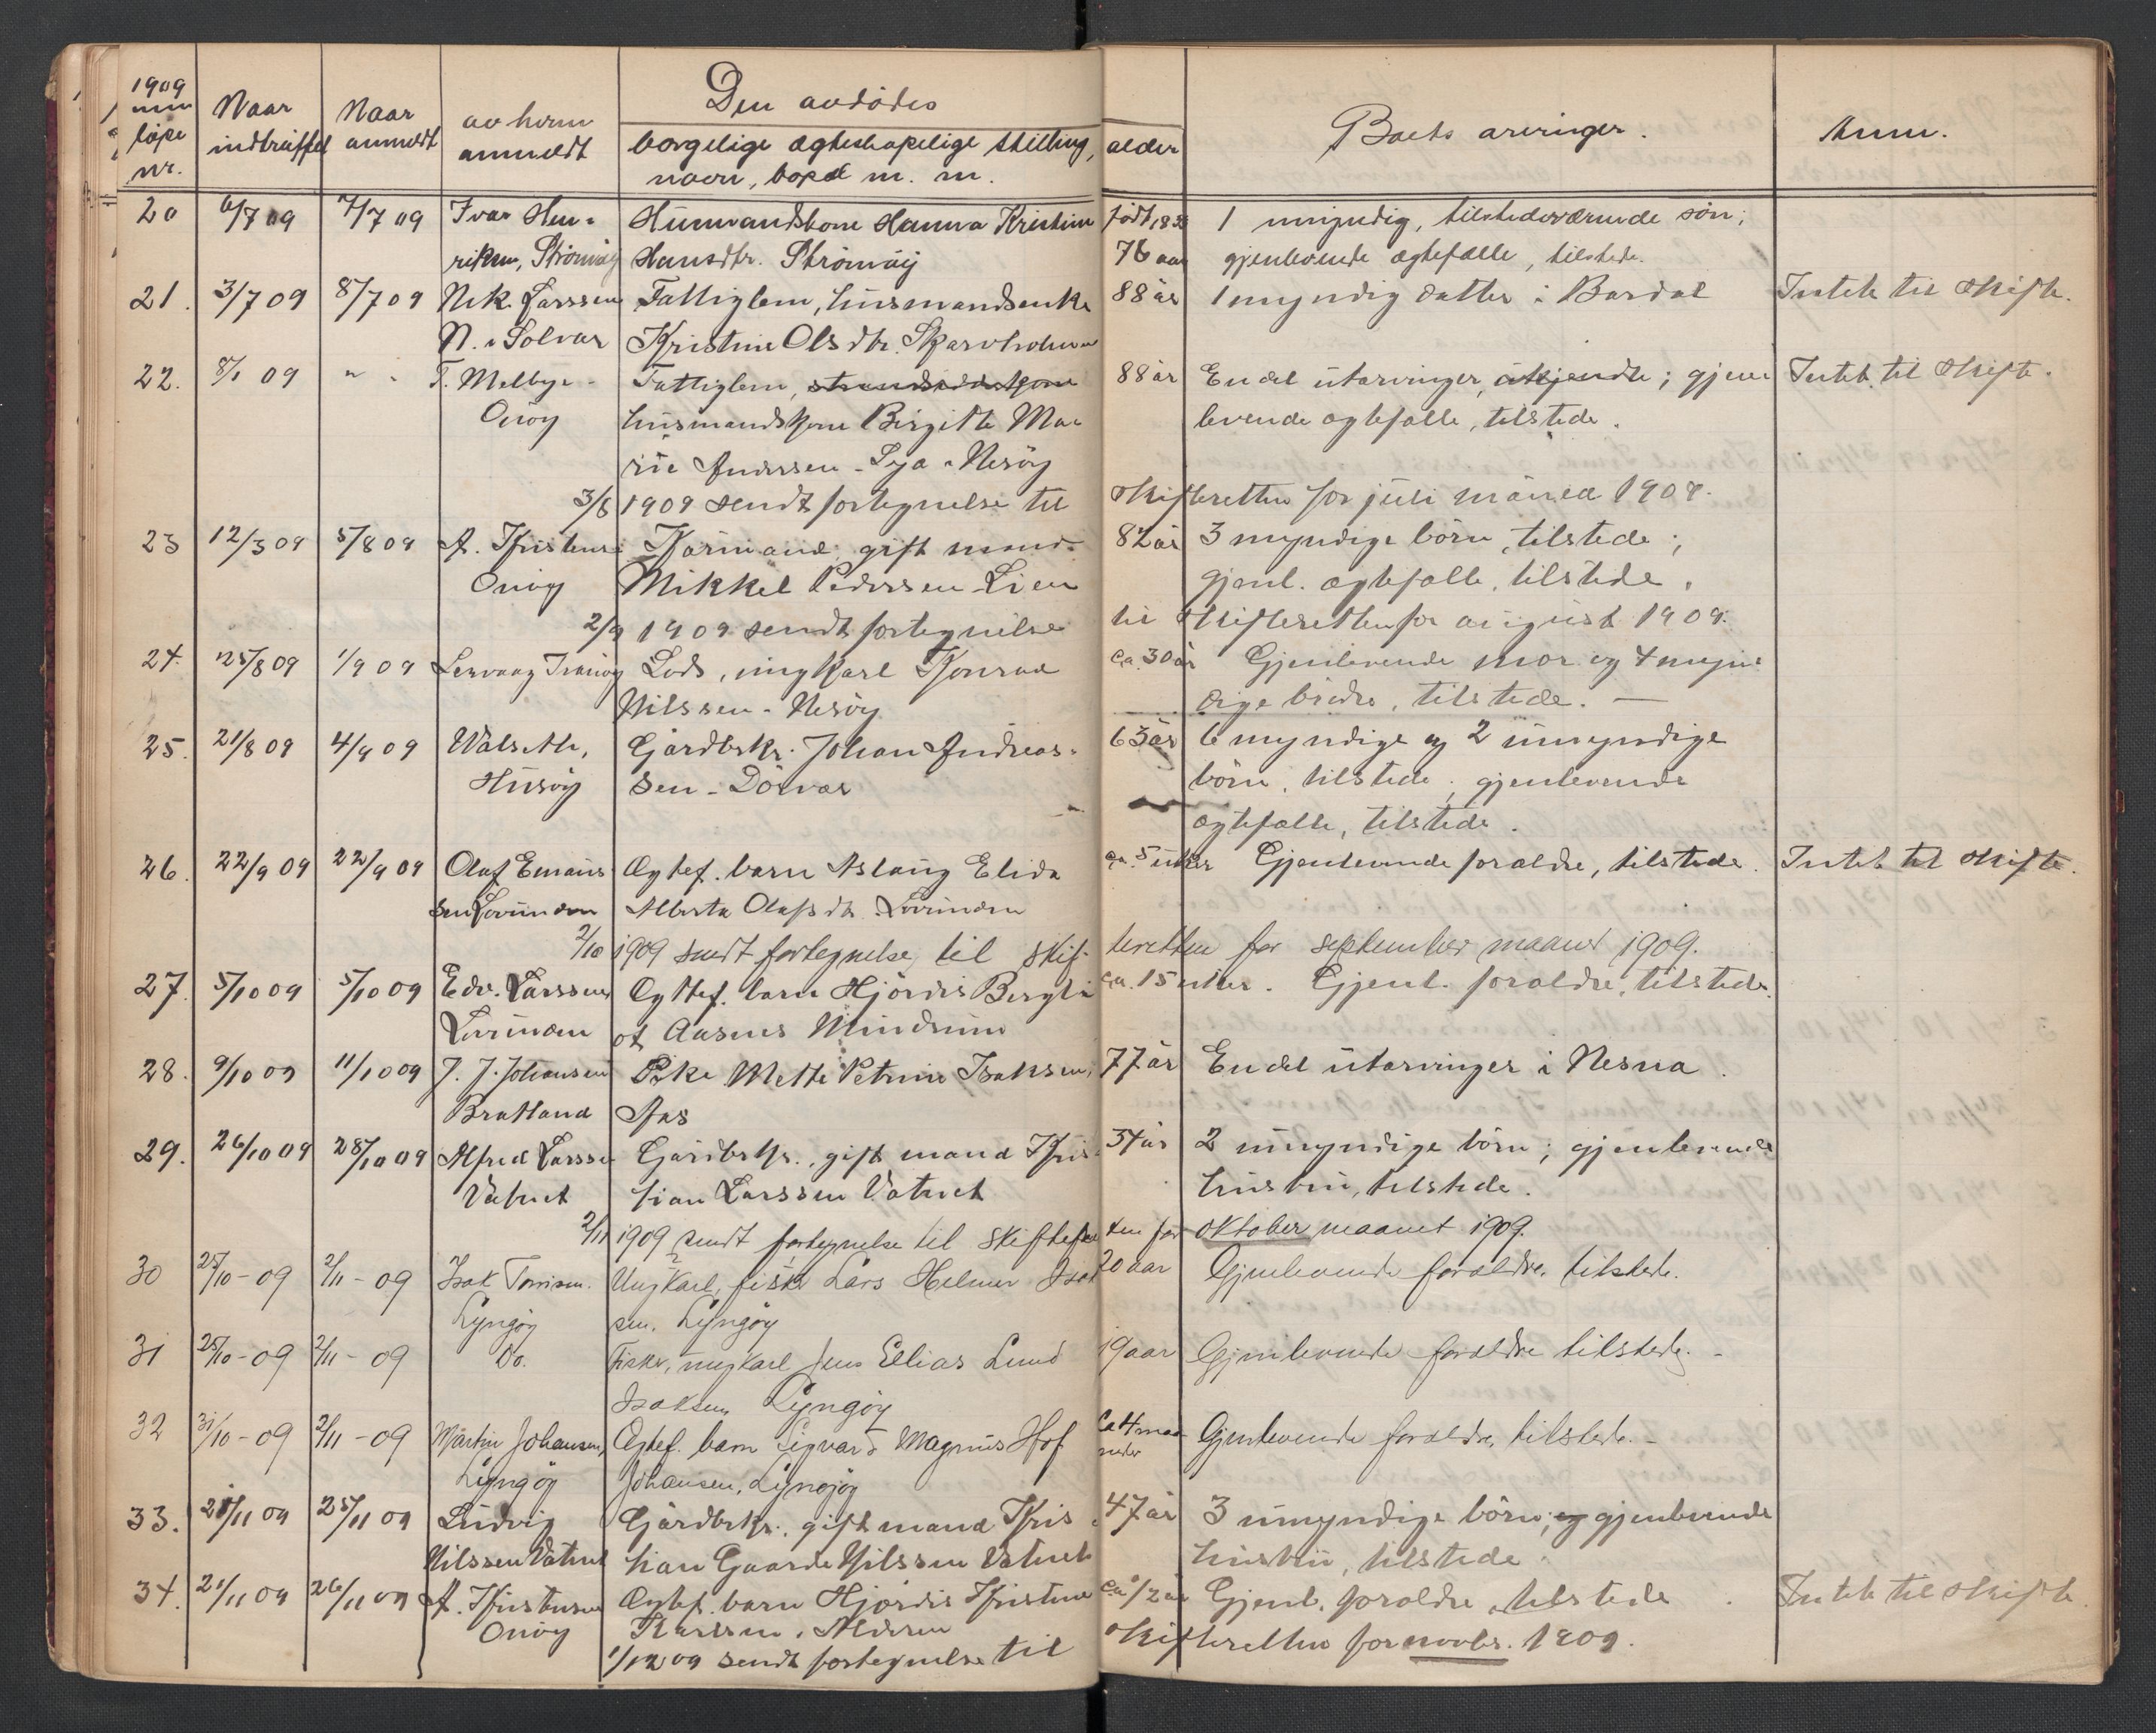 1909
løpe nr. Naar indtruffet Naar anmeldt av hvem anmeldt Den avdødes alder Boets arvinger. Anm.
borgelige egteskapelige stilling,
navn, bopæl m. m.
20 6/7 09 7/7 09 Ivar Hen- Husmandskone Hanna Kristine født 18 1 myndig, tilstedeværende søn;
riksen, Strømøy Hansdtr. Strømøy 76 aar gjenlevende ægtefælle, tilstede.
21. 3/7 09 8/7 09 Nik. Larssen Fattiglem, husmandsenke 88 år 1 myndig datter i Bardal Intet til skifte.
N. Solvær Kristine Olsdtr. Skarvholmen
22. 8/1 09 " " T. Melbye- Fattiglem, 88 år Endel utarvinger, ; gjen- Intet til skifte.
Onøy husmandskone Birgitte Ma- levende egtefælle, tilstede.
rie Anderssen - Nesøy
3/8 1909 sendt fortegnelse til skifteretten for juli måned 1909.
23 12/3 09 5/8 09 A. Kristensen Kårmand, gift mand 82 år 3 myndige børn, tilstede;
Onøy Mikkel Pederssen Lien gjenl. ægtefælle, tilstede.
2/9 1909 sendt fortegnelse til skifteretten for august 1909.
24. 25/8 09 1/9 09 Lervaag Lods, ungkarl Konrad ca. 30 år Gjenlevende mor og 4 myn-
Nilssen - Nesøy dige brødre, tilstede. —
25. 21/8 09 4/9 09 Walseth, Gårdbrkr. Johan Andreas- 63 år 6 myndige og 2 umyndige
Husøy sen - Dörvær børn, tilstede, gjenlevende
egtefælle, tilstede.
26. 22/9 09 22/9 09 Olaf Emaus- Egtef. barn Aslaug Elida ca. 5 uker Gjenlevende forældre, tilstede. Intet til skifte.
sen Lovunden Alberta Olafsdtr. Lovunden
2/10 1909 sendt fortegnelse til skifteretten for september maaned 1909.
27. 5/10 09 5/10 09 Edv. Larssen Egtef. barn Hjördis Bergli- ca. 15 uker. Gjenl. forældre, tilstede.
Lovunden ot Aasnes
28. 9/10 09 11/10 09 J. J. Johansen Pike Mette Petrine Isaksen, 77 år Endel utarvinger i Nesna.
Bratland Aas
29. 26/10 09 28/10 09 Alfred Larssen Gårdbrkr., gift mand Kris- 34 år 2 umyndige børn; gjenlevende
Vatnet tian Larssen Vatnet hustru, tilstede.
2/11 1909 sendt fortegnelse til skifteretten for oktober maanet 1909.
30 25/10 - 09 2/11 - 09 Isak Ungkarl, fisker Lars Helmer Isak- 20 aar Gjenlevende forældre, tilstede.
Lyngøy sen, Lyngøy
31 25/10 - 09 2/11 - 09 Do. Fisker, ungkarl Jens Ellias Lund 19 aar Gjenlevende forældre tilstede. -
Isaksen, Lyngøy
32 31/10 - 09 2/11 - 09 Martin Johansen, Egtef. barn Sigvard Magnus Hof Ca 4 maa- Gjenlevende forældre, tilstede. -
Lyngøy Johansen, Lyngøy neder
33. 21/11 09 25/11 09 Ludvig Gårdbrkr., gift mand Kris- 47 år 3 umyndige børn; og gjenlevende
Nilssen Vatnet tian Gaarde Nilssen Vatnet hustru, tilstede.
34. 21/11 09 26/11 09 A. Kristensen Egtef. barn Hjördis Kristine ca 1/2 år Gjenl. forældre, tilstede. Intet til skifte.
Onøy Karlssen, Alderen
1/12 09 sendt fortegnelse til skifteretten for novbr. 1909.